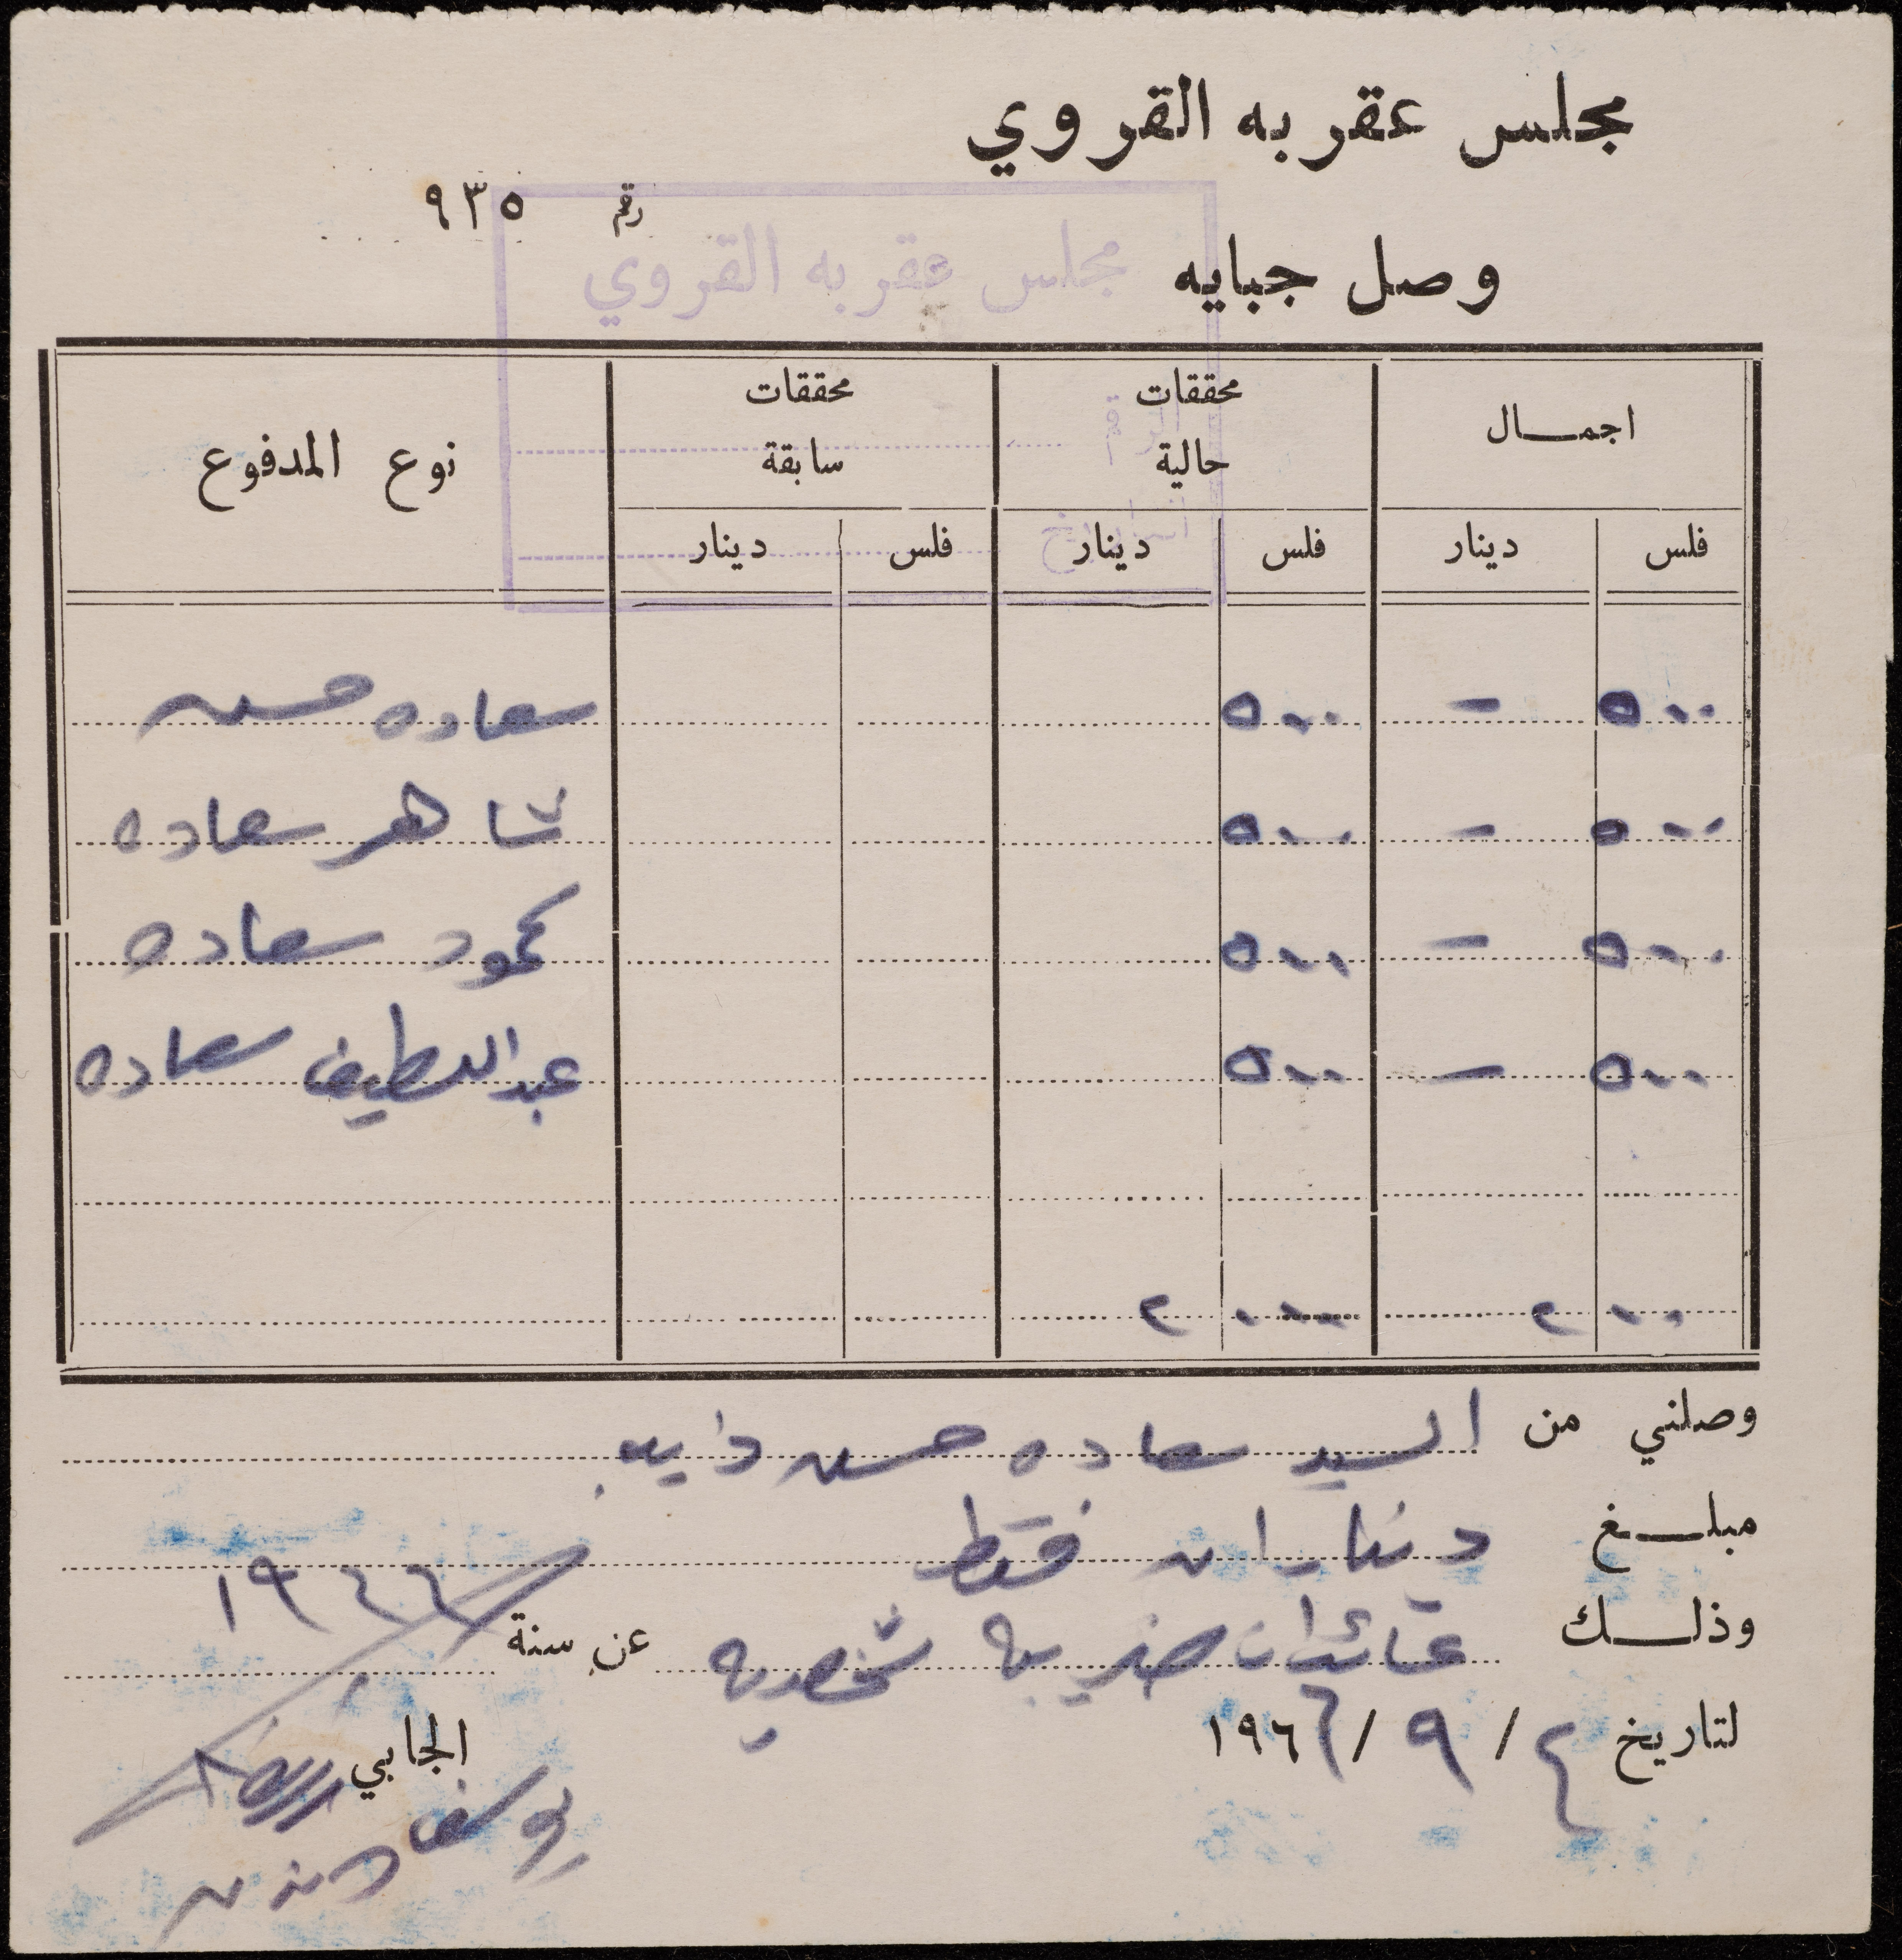 مجلس عقربه القروي
رقم ٩٣٥
وصل جبايه
مجلس عقربه القروي
الرقم
التاريخ
اجمــال محققات حالية محققات سابقة نوع المدفوع
فلس دينار فلس دينار فلس دينار
٥٠٠ - ٥٠٠ سعاده حسن
٥٠٠ - ٥٠٠ شاهر سعاده
٥٠٠ - ٥٠٠ محمود سعاده
٥٠٠ - ٥٠٠ عبد اللطيف سعاده
٠٠٠ ٢ ٠٠٠ ٢
وصلني من السيد سعاده حسن دايه
مبلــغ ديناران فقط
وذلــك عائدات ضريبة شخصية عن سنة ١٩٦٦
لتاريخ ٤ / ٩ / ١٩٦٦
الجابي
يوسف